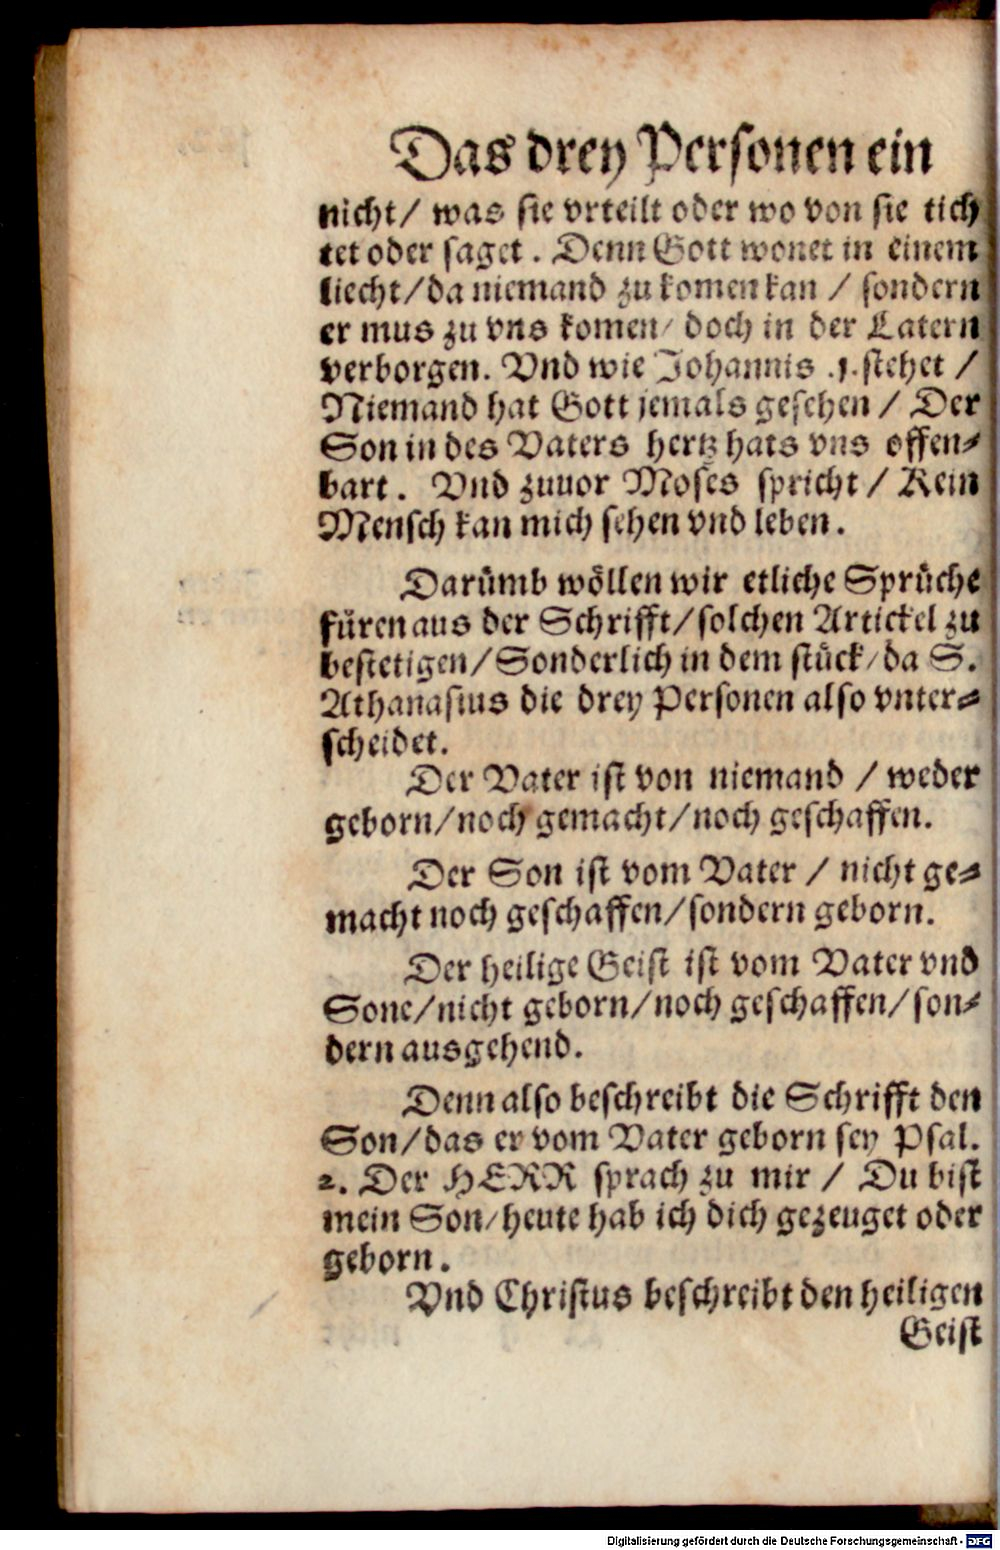 Das drey Personen ein
nicht/ was sie vrteilt oder wo von sie tich
tet oder saget. Denn Gott wonet in einem
liecht/da niemand zu komen kan / sondern
er mus zu vns komen/ doch in der Latern
verborgen. Vnd wie Johannis .1. stehet /
Niemand hat Gott jemals gesehen / Der
Son in des Vaters hertz hats vns offen⸗
bart. Vnd zuuor Moses spricht / Kein
Mensch kan mich sehen vnd leben.
Darümb wöllen wir etliche Sprüche
füren aus der Schrifft/solchen Artickel zu
bestetigen/Sonderlich in dem stück/da S.
Athanasius die drey Personen also vnter⸗
scheidet.
Der Vater ist von niemand / weder
geborn/noch gemacht/noch geschaffen.
Der Son ist vom Vater / nicht ge⸗
macht noch geschaffen/sondern geborn.
Der heilige Geist ist vom Vater vnd
Sone/nicht geborn/noch geschaffen/son⸗
dern ausgehend.
Denn also beschreibt die Schrifft den
Son/das er vom Vater geborn sey Psal.
2. Der HERR sprach zu mir / Du bist
mein Son/heute hab ich dich gezeuget oder
geborn.
Vnd Christus beschreibt den heiligen
Geist
Digitalisierung gefördert durch die Deutsche Forschungsgemeinschaft - DFG